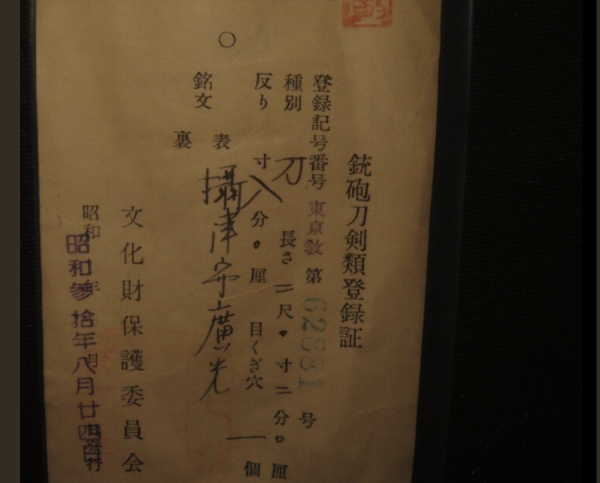 銃砲刀剣類登録証
登録記号番号 東京教 第 62831 号
種別 刀 長さ 二尺・寸二分〇厘
反り 寸八分・厘 目くぎ穴 一個
銘文 表 攝津守廣光
裏
文化財保護委員会
昭和参拾年八月廿四日